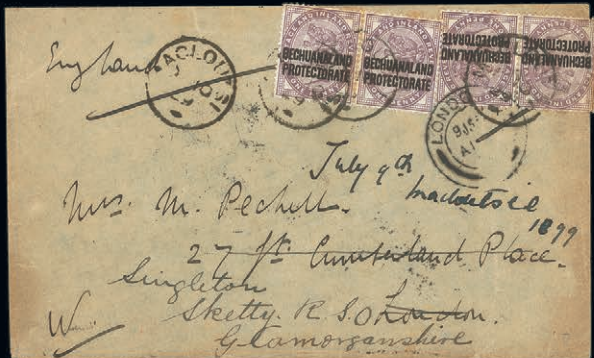 England
MACLOUTSI
BECHUANALAND
PROTECTORATE
BECHUANALAND
PROTECTORATE
BECHUANALAND
PROTECTORATE
BECHUANALAND
PROTECTORATE
LONDON
July 9th
1899
Mrs. M. Pechell.
27 Gt. Cumberland Place.
Singleton
Sketty. R. S. O London.
Glamorganshire